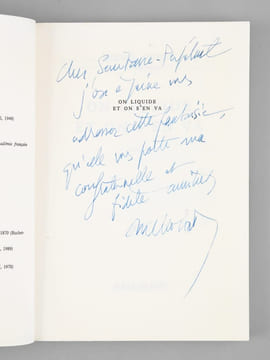 Cher Secrétaire-Perpétuel
j'ose à peine vous
ON LIQUIDE
ET ON S'EN VA
adresser cette fantaisie,
qu'elle vous porte ma
confraternelle et
fidèle amitié
, 1946)
adémie français
1870 (Bucher
, 1969)
, 1970)